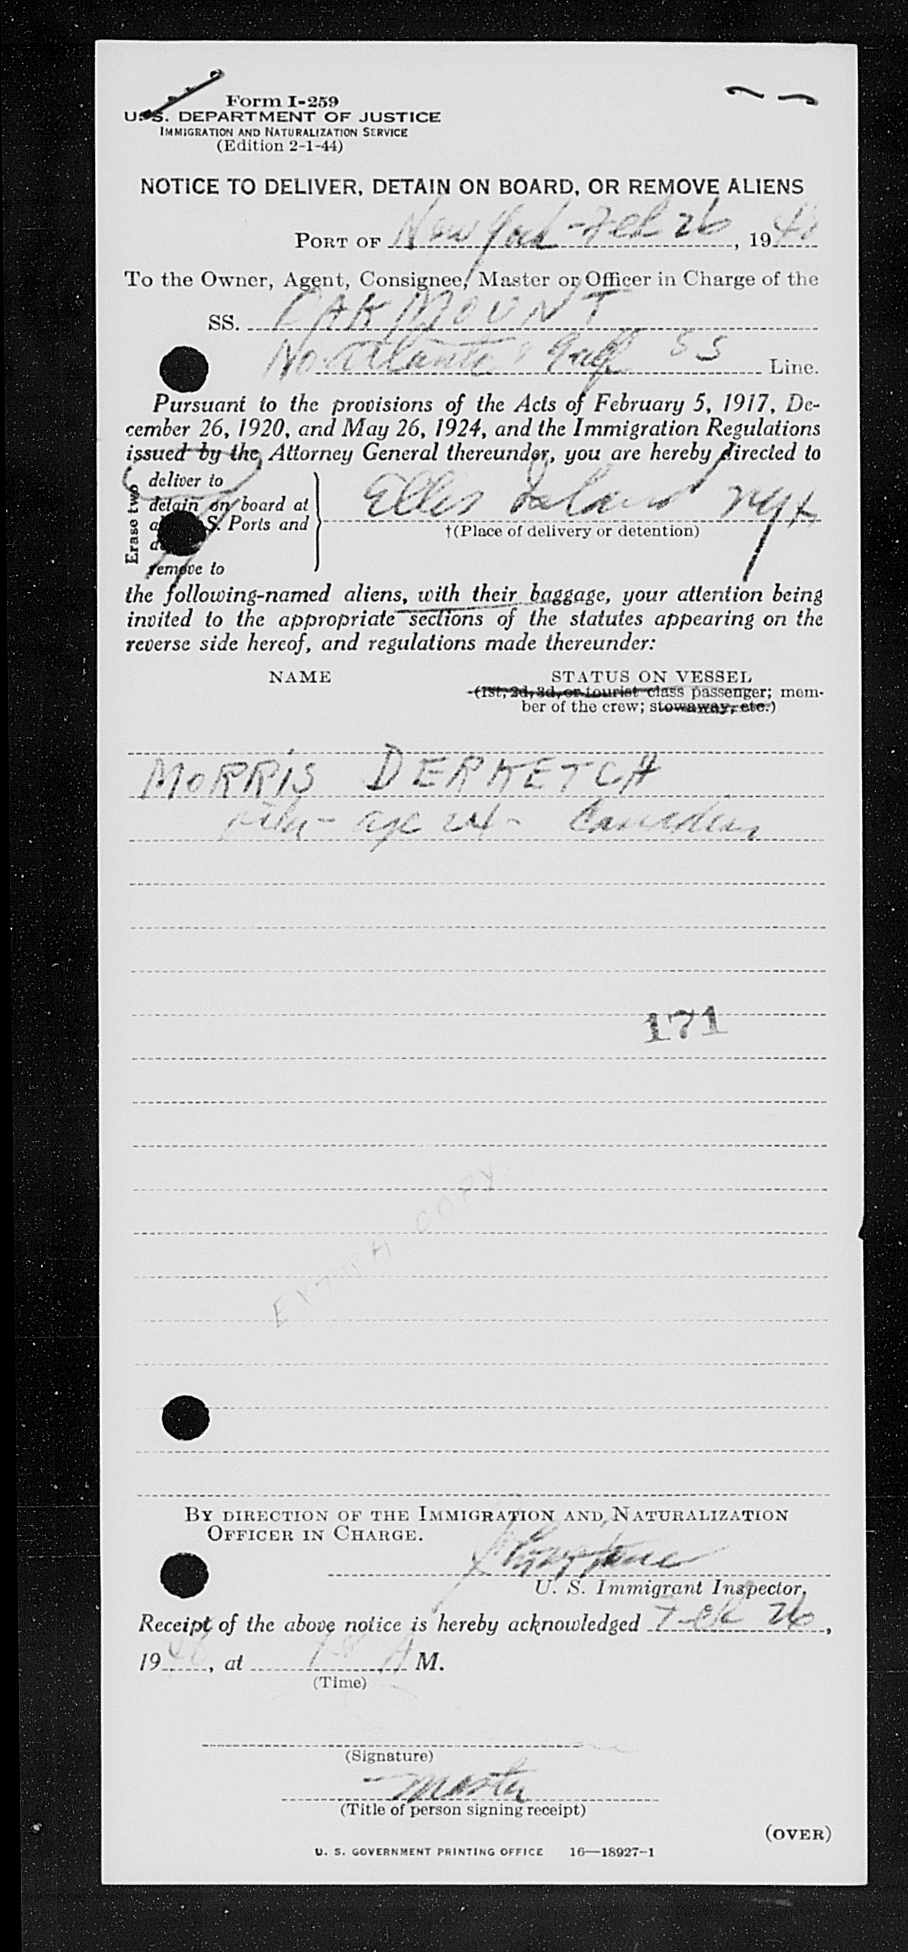 Form I-259
U. S. DEPARTMENT OF JUSTICE
IMMIGRATION AND NATURALIZATION SERVICE
(Edition 2-1-44)
NOTICE TO DELIVER, DETAIN ON BOARD, OR REMOVE ALIENS
PORT OF New York - Feb 26, 1948
To the Owner, Agent, Consignee, Master or Officer in Charge of the
SS. OAKMOUNT
No. Atlantic & Gulf SS Line.
Pursuant to the provisions of the Acts of February 5, 1917, De-
cember 26, 1920, and May 26, 1924, and the Immigration Regulations
issued by the Attorney General thereunder, you are hereby directed to
Erase two
deliver to
detain on board at
S. Ports and
remove to
Ellis Island
†(Place of delivery or detention)
the following-named aliens, with their baggage, your attention being
invited to the appropriate sections of the statutes appearing on the
reverse side hereof, and regulations made thereunder:
NAME STATUS ON VESSEL
(1st, 2d, 3d, or tourist class passenger; mem-
ber of the crew; stowaway, etc.)
MORRIS DERKETCH
age 24 - Canadian
171
EXTRA COPY
BY DIRECTION OF THE IMMIGRATION AND NATURALIZATION
OFFICER IN CHARGE.
U. S. Immigrant Inspector,
Receipt of the above notice is hereby acknowledged Feb 26,
1948, at A M.
(Time)
(Signature)
- Master
(Title of person signing receipt)
(OVER)
U. S. GOVERNMENT PRINTING OFFICE 16—18927-1